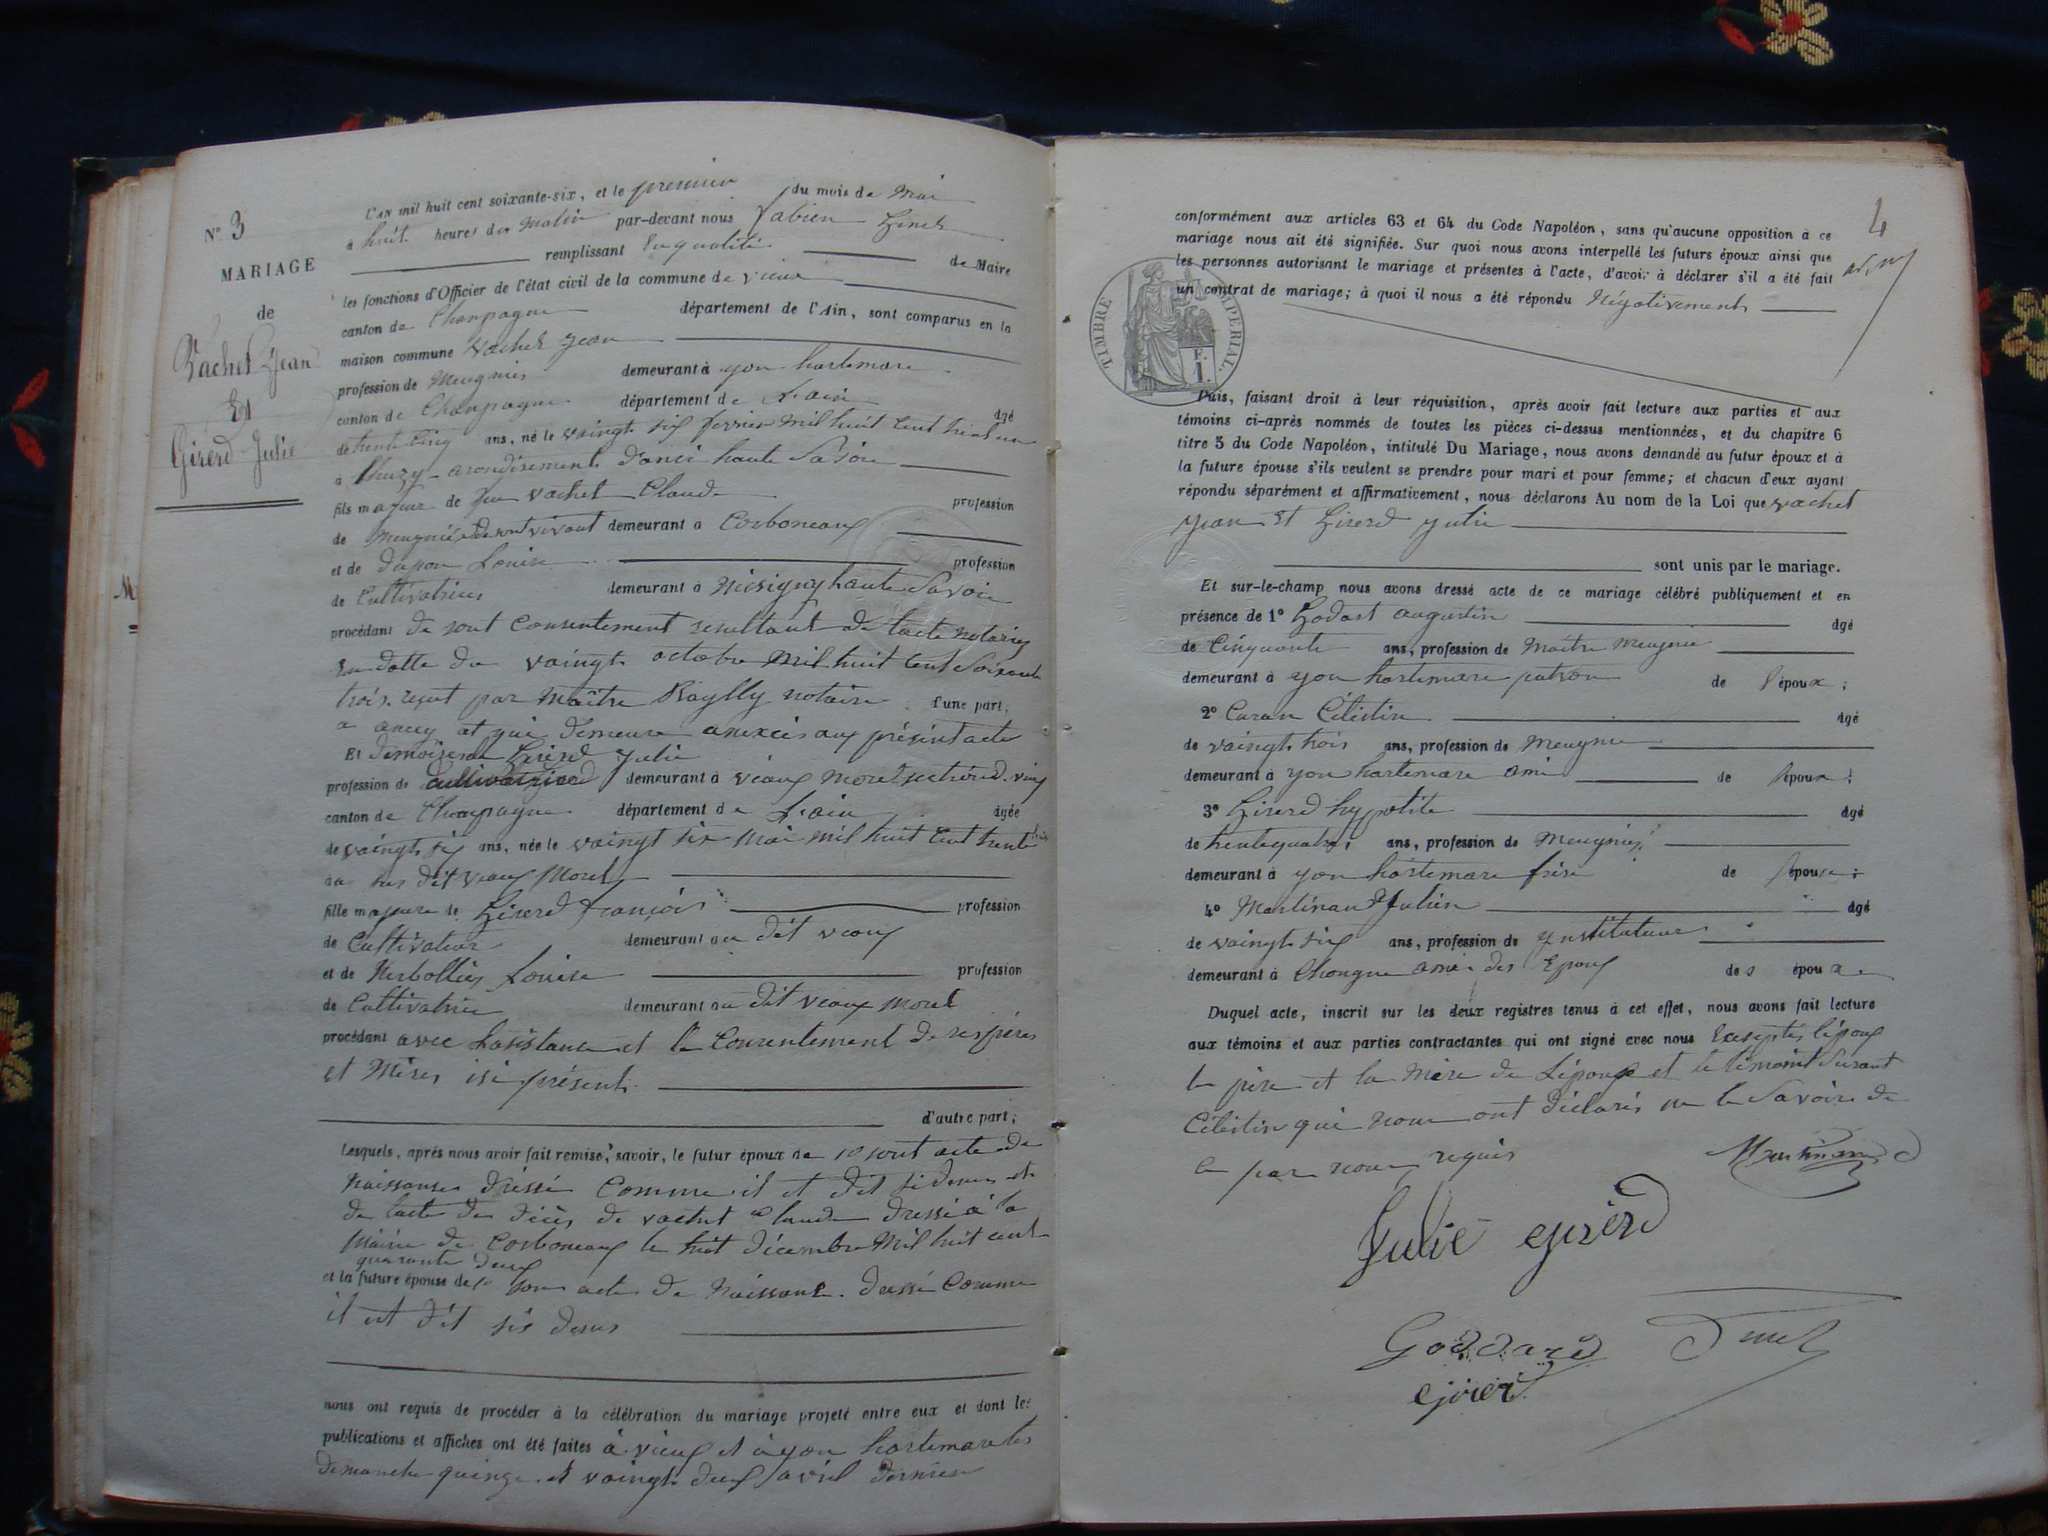 N° 3
MARIAGE
de
Vachet Jean
Et
Girerd Julie
L'AN mil huit cent soixante-six, et le premier du mois de Mai
à huit heures du Matin par-devant nous fabienGinet
remplissant En qualité de Maire
les fonctions d'Officier de l'état civil de la commune de vieux
canton de Champagne département de l'Ain, sont comparus en la
maison commune Vachet Jean
profession de Meugnier demeurant à yon hartemare
canton de Champagne département de L'ain âgé
de trente cinq ans, né le vaingt six fevrier mil huit cent trente un
à arondisement d'anci haute Savoie
fils majeur de feu vachet Claude profession
de Meugnier de son vivant demeurant à Corboneaux
et de Dupon Louise profession
de Cultivatrice demeurant à haute Savoie
procédant de sont Consentement resultant de l'acte notariez
En datte du vaingt octobre Mil huit Cent Soixante
trois reçut par Maître notaire d'une part;
a ancy et qui demeure anexées aux présint acte
Et demoiselle Girerd Julie
profession de cultivatrice demeurant à vieaux
canton de Champagne département de L'ain âgée
de vaingt six ans, née le vaingt six Mai mil huit Cent trente
au dit vieaux Morel
fille majeure de Girerd françois profession
de Cultivateur demeurant au dit vieaux
et de Louise profession
de Cultivatrice demeurant au dit vieaux Morel
procédant avec l'asistance et le Consentement de ses pères
et Mères isi présent
d'autre part;
Lesquels, après nous avoir fait remise, savoir, le futur époux de 1° sont acte de
Naissanse dréssé Comme il et dit si desus et
de l'acte de décès de vachet Claude dréssé à la
Mairie de Corboneaux le huit décembre Mil huit cent
quarante deux
et la future épouse de 1° son acte de Naissance dréssé Comme
il est dit sis desus
nous ont requis de procéder à la célébration du mariage projeté entre eux et dont les
publications et affiches ont été faites à vieux et à yon hartemare les
dimanche quinze et vaingt deux avril dernier
4
conformément aux articles 63 et 64 du Code Napoléon, sans qu'aucune opposition à ce
mariage nous ait été signifiée. Sur quoi nous avons interpellé les futurs époux ainsi que
les personnes autorisant le mariage et présentes à l'acte, d'avoir à déclarer s'il a été fait
un contrat de mariage; à quoi il nous a été répondu Négativement
TIMBRE IMPERIAL.
F.
1.
Puis, faisant droit à leur réquisition, après avoir fait lecture aux parties et aux
témoins ci-après nommés de toutes les pièces ci-dessus mentionnées, et du chapitre 6
titre 5 du Code Napoléon, intitulé Du Mariage, nous avons demandé au futur époux et à
la future épouse s'ils veulent se prendre pour mari et pour femme; et chacun d'eux ayant
répondu séparément et affirmativement, nous déclarons Au nom de la Loi que vachet
Jean Et Girerd Julie
sont unis par le mariage.
Et sur-le-champ nous avons dressé acte de ce mariage célébré publiquement et en
présence de 1° Godart augustin âgé
de Cinquante ans, profession de Maître Meugnie
demeurant à yon hartemare patron de l'époux;
2° Célestin âgé
de vaingt trois ans, profession de Meugnie
demeurant à yon hartemare ami de l'époux;
3° Girerd hypolite âgé
de trente quatre ans, profession de Meugnier
demeurant à yon hartemare frère de l'épouse;
4° Martinand Julien âgé
de vaingt six ans, profession de ynstituteur
demeurant à Chongne amie des Epoux des époux
Duquel acte, inscrit sur les deux registres tenus à cet effet, nous avons fait lecture
aux témoins et aux parties contractantes qui ont signé avec nous Exseptés l'époux
le père et la Mère de L'épouse et le témoint
Célestin qui nous ont déclarés ne le Savoire de
ce par nous requis
Martinand
Julie girerd
Goddard
Ginet
girerd